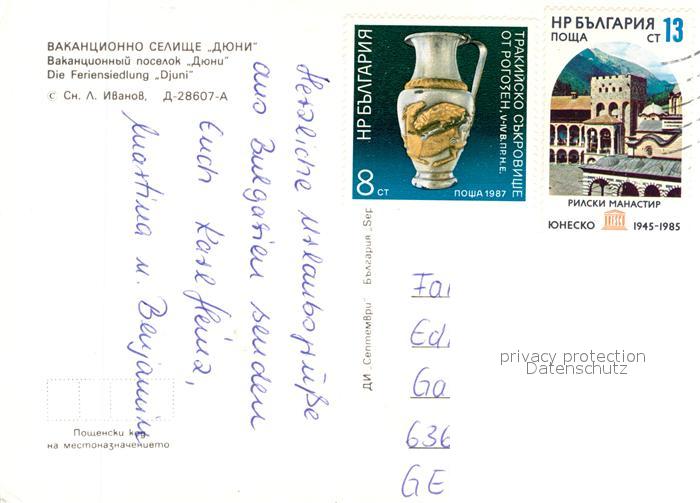 ВАКАНЦИОННО СЕЛИЩЕ „ДЮНИ"
Ваканционный поселок „Дюни"
Die Feriensiedlung „Djuni"
© Сн. Л. Иванов, Д-28607-А
Herzliche Urlaubsgrüße
aus Bulgarien senden
Euch Karl Heinz,
Martina u. Benjamin
Пощенски код
на местоназначението
ДИ „Септември" България „Sep
НР БЪЛГАРИЯ
ТРАКИЙСКО СЪКРОВИЩЕ
ОТ РОГОЗЕН, V-IV В. ПР. Н. Е.
8 СТ
ПОЩА 1987
НР БЪЛГАРИЯ
ПОЩА СТ 13
РИЛСКИ МАНАСТИР
ЮНЕСКО 1945-1985
Fa
Ed
Ga
636
GE
privacy protection
Datenschutz